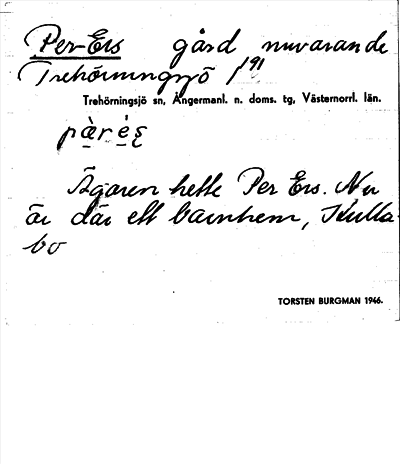 Per-Ers gård nuvarande
Trehörningsjö 1/91
Trehörningsjö sn, Ångermanl. n. doms. tg, Västernorrl. län.
Ägaren hette Per Ers. Nu
är där ett barnhem, Kulla-
bo
TORSTEN BURGMAN 1946.